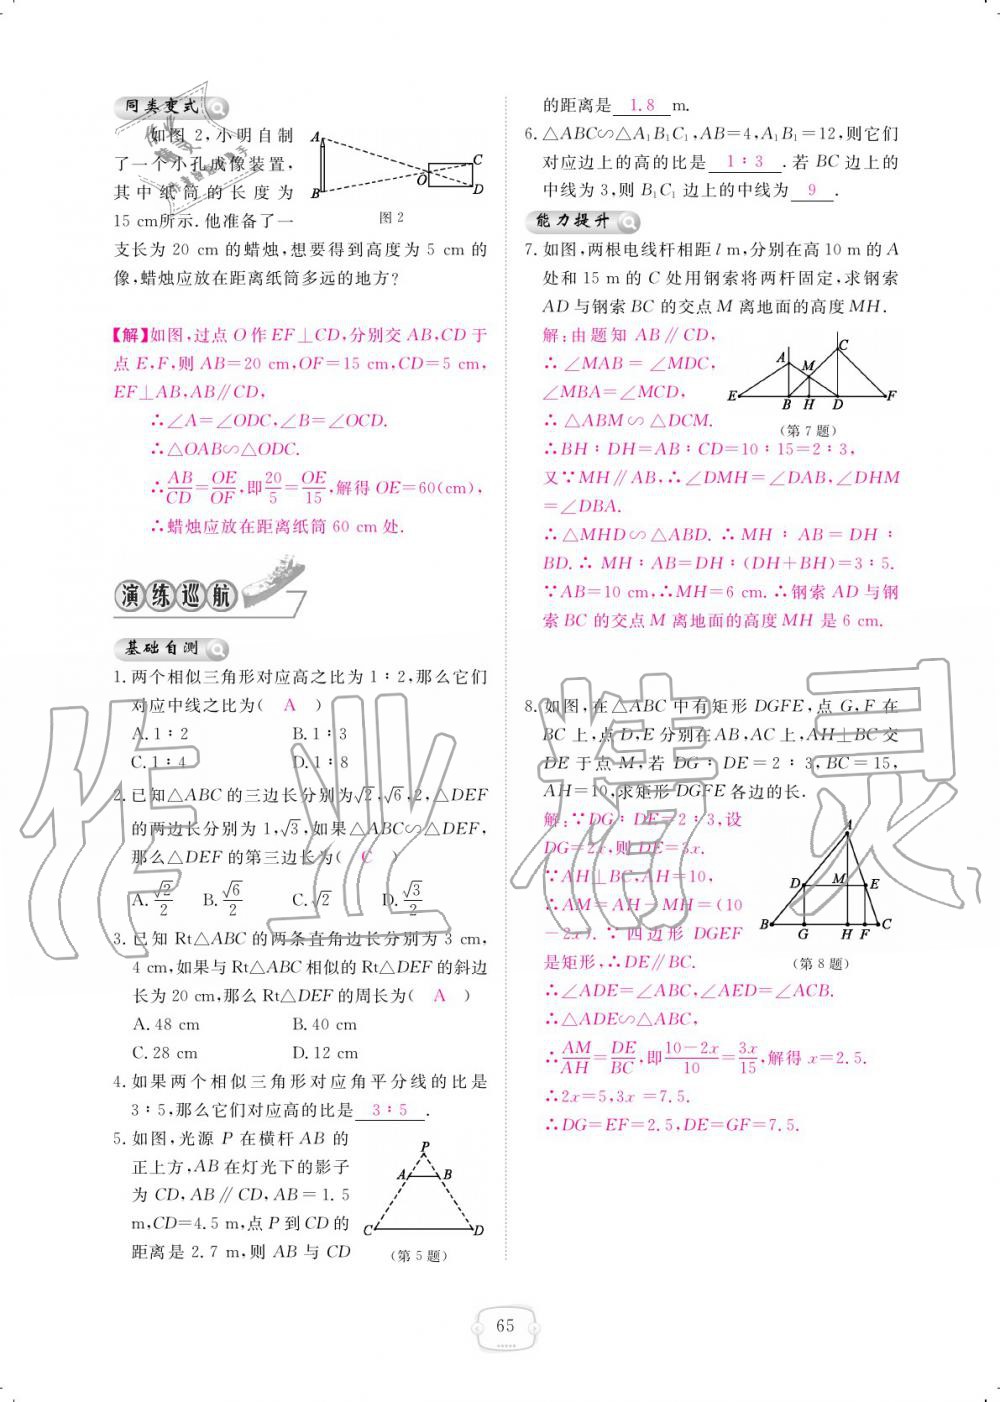 同类变式
如图 2,小明自制
了一个小孔成像装置,
其中纸筒的长度为
15 cm所示.他准备了一
支长为 20 cm 的蜡烛,想要得到高度为 5 cm 的
像,蜡烛应放在距离纸筒多远的地方?
A
B
O
C
D
图 2
【解】如图,过点 O 作 EF⊥CD,分别交 AB,CD 于
点 E,F,则 AB=20 cm,OF=15 cm,CD=5 cm,
EF⊥AB,AB∥CD,
∴∠A=∠ODC,∠B=∠OCD.
∴△OAB∽△ODC.
∴AB/CD=OE/OF,即20/5=OE/15,解得 OE=60(cm),
∴蜡烛应放在距离纸筒 60 cm 处.
演练巡航
基础自测
1. 两个相似三角形对应高之比为 1∶2,那么它们
对应中线之比为( A )
A. 1∶2 B. 1∶3
C. 1∶4 D. 1∶8
2. 已知△ABC 的三边长分别为√2,√6,2,△DEF
的两边长分别为 1,√3,如果△ABC∽△DEF,
那么△DEF 的第三边长为( C )
A. √2/2 B. √6/2 C. √2 D. √3/2
3. 已知 Rt△ABC 的两条直角边长分别为 3 cm,
4 cm,如果与 Rt△ABC 相似的 Rt△DEF 的斜边
长为 20 cm,那么 Rt△DEF 的周长为( A )
A. 48 cm B. 40 cm
C. 28 cm D. 12 cm
4. 如果两个相似三角形对应角平分线的比是
3∶5,那么它们对应高的比是 3∶5 .
5. 如图,光源 P 在横杆 AB 的
正上方,AB 在灯光下的影子
为 CD,AB∥CD,AB=1.5
m,CD=4.5 m,点 P 到 CD 的
距离是 2.7 m,则 AB 与 CD
P
A B
C D
(第 5 题)
的距离是 1.8 m.
6. △ABC∽△A₁B₁C₁,AB=4,A₁B₁=12,则它们
对应边上的高的比是 1∶3 .若 BC 边上的
中线为 3,则 B₁C₁ 边上的中线为 9 .
能力提升
7. 如图,两根电线杆相距 l m,分别在高 10 m 的 A
处和 15 m 的 C 处用钢索将两杆固定,求钢索
AD 与钢索 BC 的交点 M 离地面的高度 MH.
解:由题知 AB∥CD,
∴∠MAB=∠MDC,
∠MBA=∠MCD,
∴△ABM∽△DCM.
∴BH∶DH=AB∶CD=10∶15=2∶3,
又∵MH∥AB,∴∠DMH=∠DAB,∠DHM
=∠DBA.
∴△MHD∽△ABD.∴MH∶AB=DH∶
BD.∴MH∶AB=DH∶(DH+BH)=3∶5.
∵AB=10 cm,∴MH=6 cm.∴钢索 AD 与钢
索 BC 的交点 M 离地面的高度 MH 是 6 cm.
A M C
E B H D F
(第 7 题)
8. 如图,在△ABC 中有矩形 DGFE,点 G,F 在
BC 上,点 D,E 分别在 AB,AC 上,AH⊥BC 交
DE 于点 M,若 DG∶DE=2∶3,BC=15,
AH=10,求矩形 DGFE 各边的长.
解:∵DG∶DE=2∶3,设
DG=2x,则 DE=3x.
∵AH⊥BC,AH=10,
∴AM=AH-MH=(10
-2x).∵四边形 DGEF
是矩形,∴DE∥BC.
∴∠ADE=∠ABC,∠AED=∠ACB.
∴△ADE∽△ABC,
∴AM/AH=DE/BC,即(10-2x)/10=3x/15,解得 x=2.5.
∴2x=5,3x=7.5.
∴DG=EF=2.5,DE=GF=7.5.
A
D M E
B G H F C
(第 8 题)
作业精灵
65